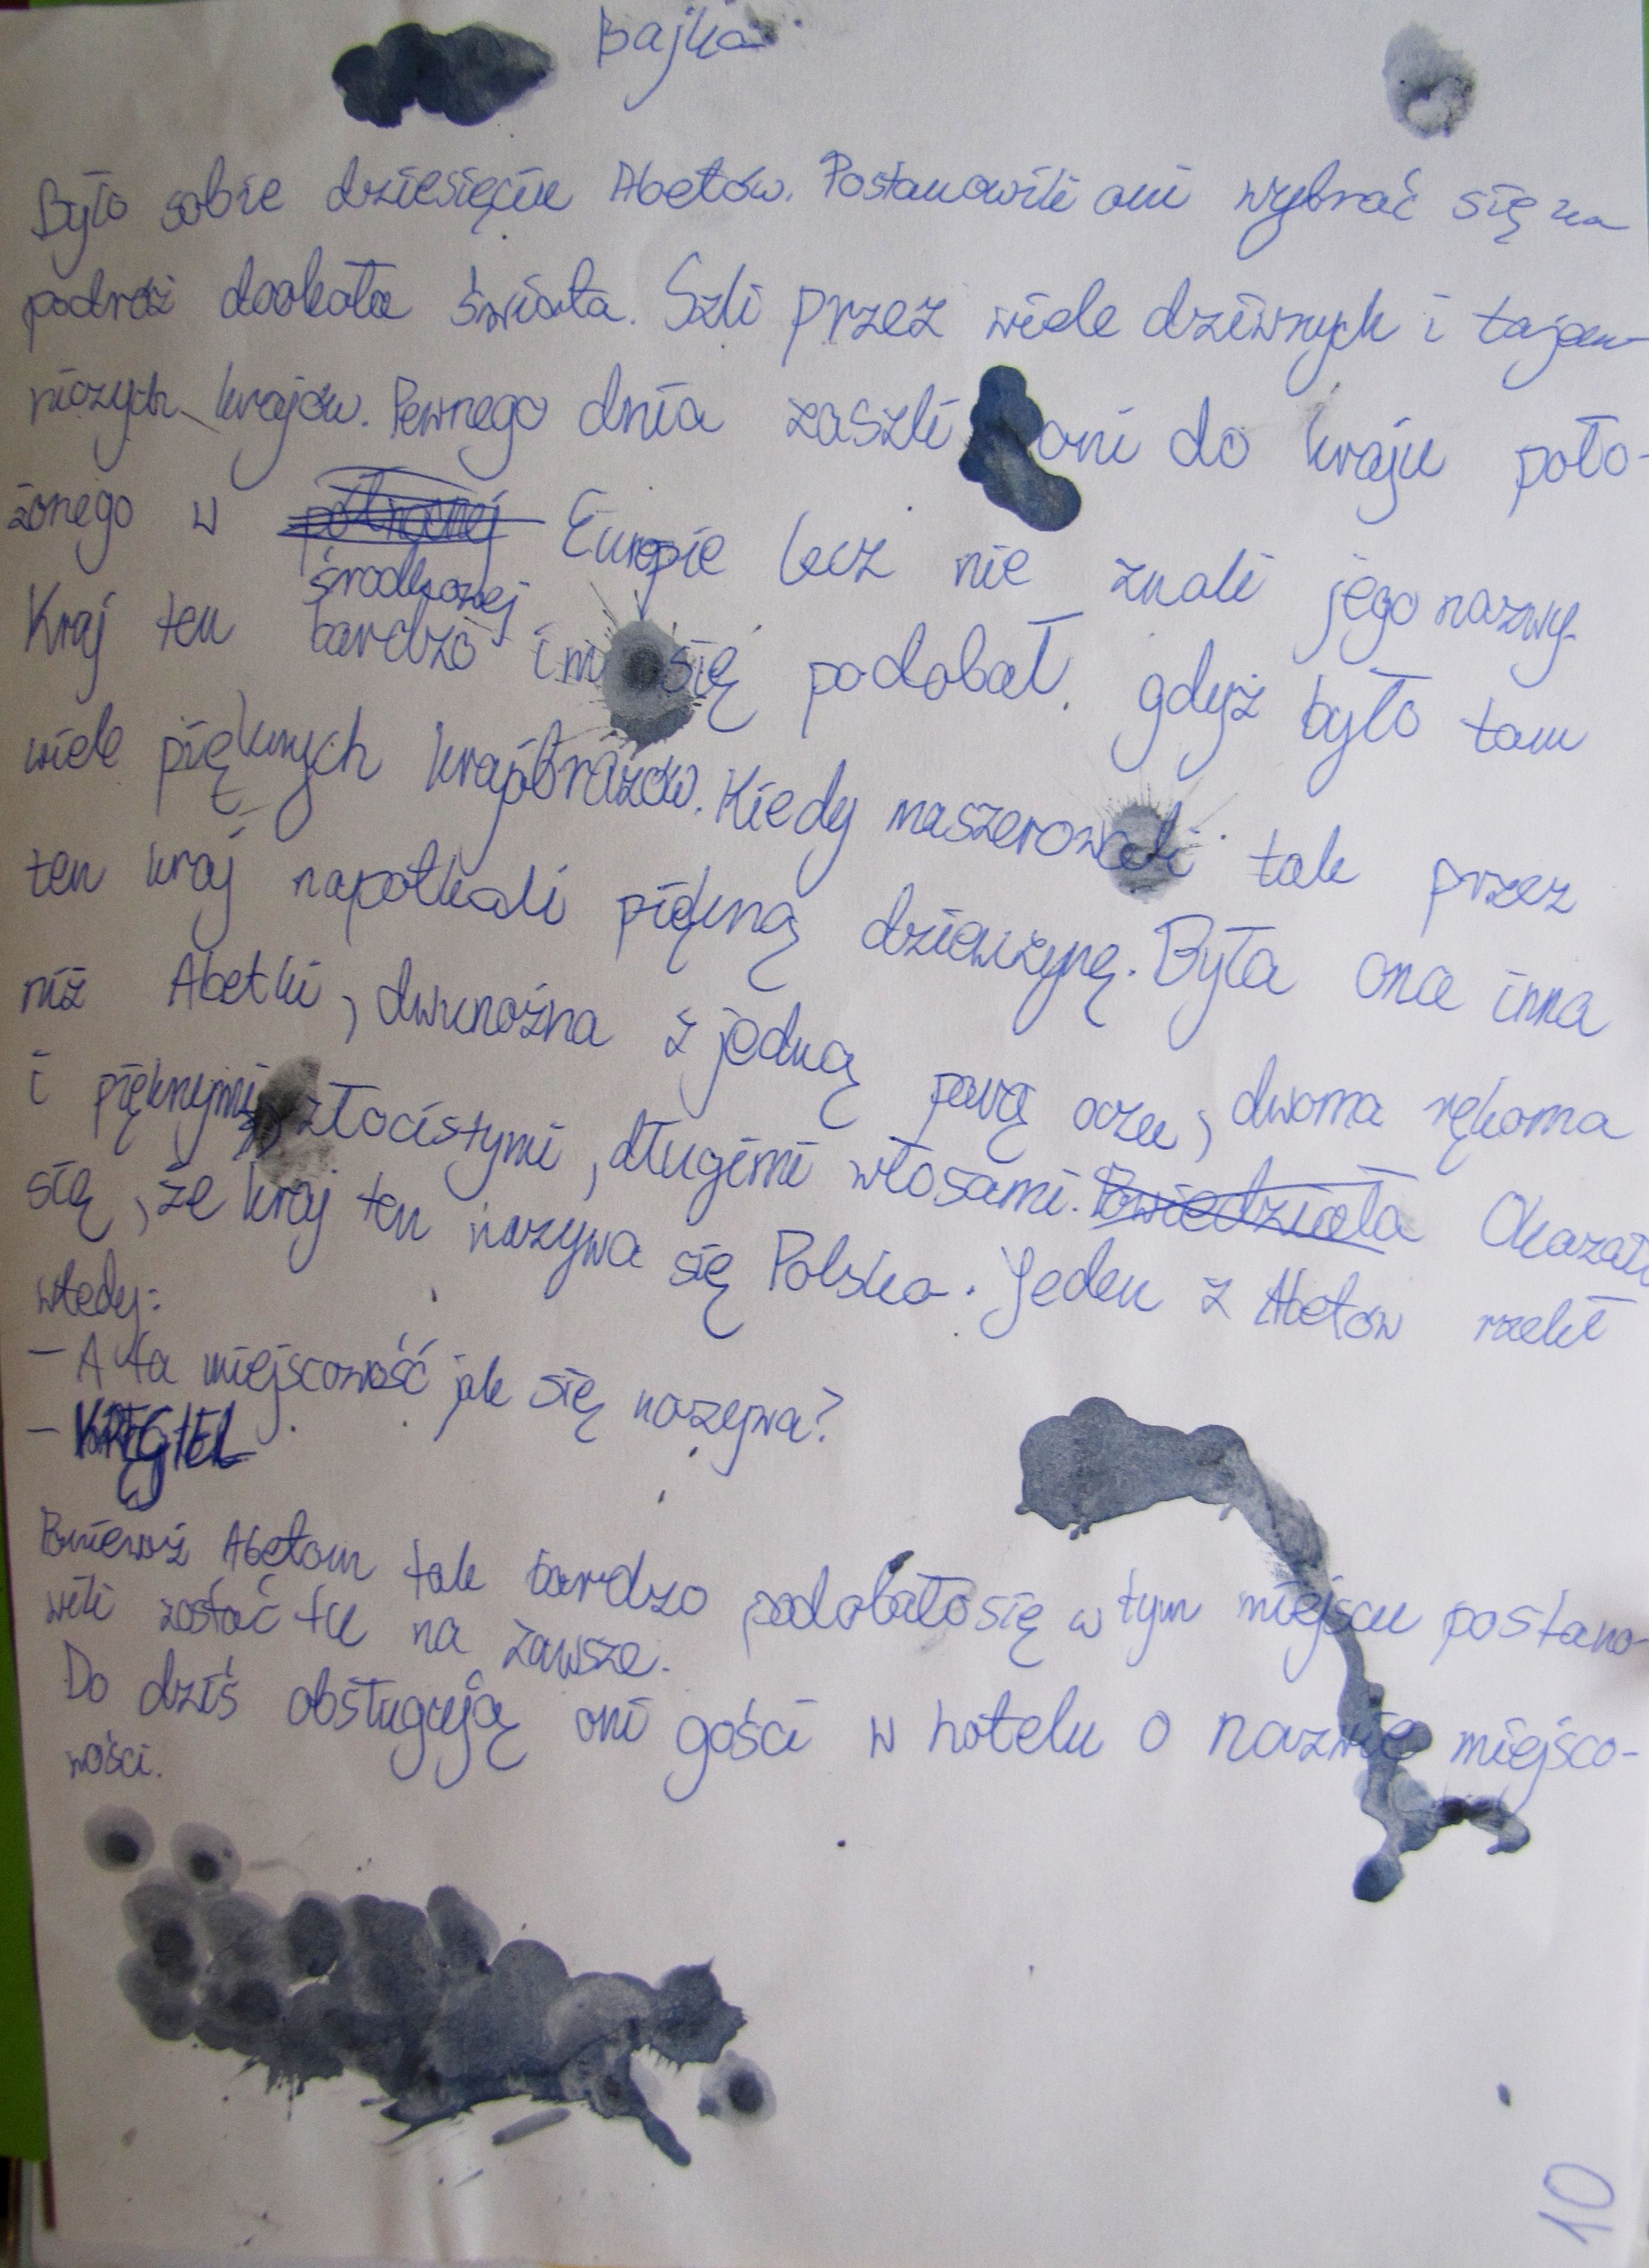 Bajka
Było sobie dziesięciu Abetów. Postanowili oni wybrać się na
podroż dookoła świata. Szli przez wiele dziwnych i tajem-
niczych krajów. Pewnego dnia zaszli oni do kraju poło-
żonego w północnej Europie lecz nie znali jego nazwy.
środkowej
Kraj ten bardzo im się podobał, gdyż było tam
wiele pięknych krajobrazów. Kiedy maszerowali tak przez
ten kraj napotkali piękną dziewczynę. Była ona inna
niż Abetki, dwunożna z jedną parą oczu, dwoma rękoma
i pięknymi złocistymi, długimi włosami. Powiedziała Okazało
się, że kraj ten nazywa się Polska. Jeden z Abetów rzekł
wtedy:
- A ta miejscowość jak się nazywa?
- KRĘGIEL
Ponieważ Abetom tak bardzo podobało się w tym miejscu postano-
wili zostać tu na zawsze.
Do dziś obsługują oni gości w hotelu o nazwie miejsco-
wości.
10